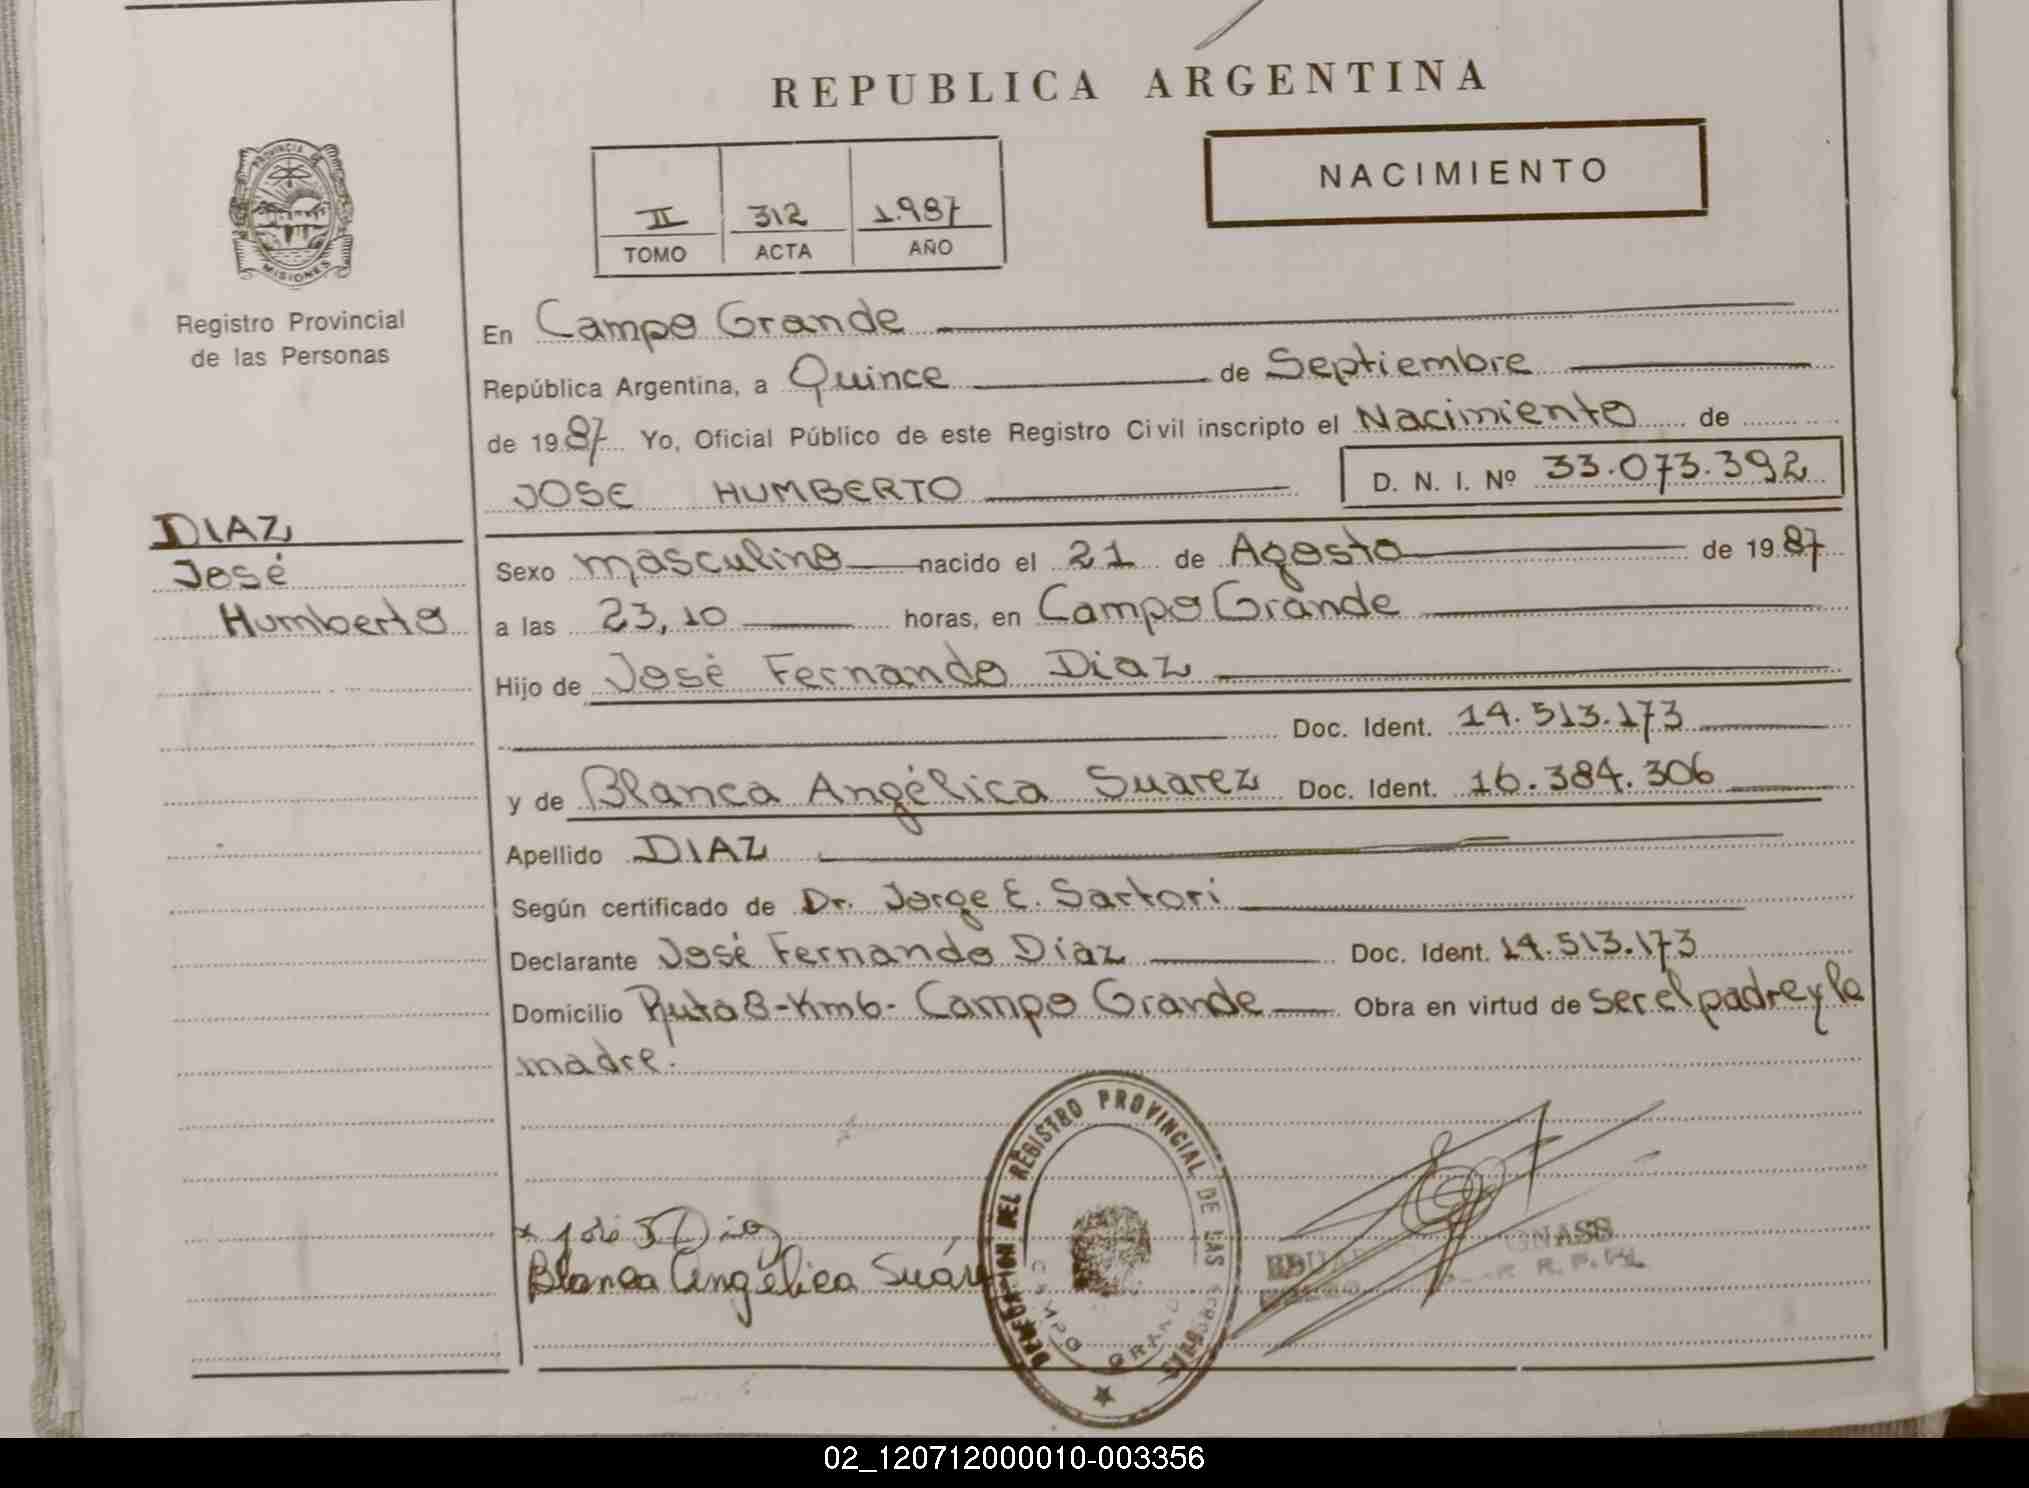 REPUBLICA ARGENTINA
PROVINCIA DE
MISIONES
Registro Provincial
de las Personas
II 312 1.987
TOMO ACTA AÑO
NACIMIENTO
En Campo Grande
República Argentina, a Quince de Septiembre
de 1987 Yo, Oficial Público de este Registro Civil inscripto el Nacimiento de
JOSE HUMBERTO D. N. I. Nº 33.073.392
DIAZ
José
Humberto
Sexo masculino nacido el 21 de Agosto de 1987
a las 23,10 horas, en Campo Grande
Hijo de José Fernando Diaz
Doc. Ident. 14.513.173
y de Blanca Angélica Suarez Doc. Ident. 16.384.306
Apellido DIAZ
Según certificado de Dr. Jorge E. Sartori
Declarante José Fernando Diaz Doc. Ident. 14.513.173
Domicilio Ruta 8-Km6- Campo Grande Obra en virtud de ser el padre y la
madre.
José F Diaz
Blanca Angélica Suár
DELEGACION DEL REGISTRO PROVINCIAL DE LAS PERSONAS
CAMPO GRANDE
02_120712000010-003356